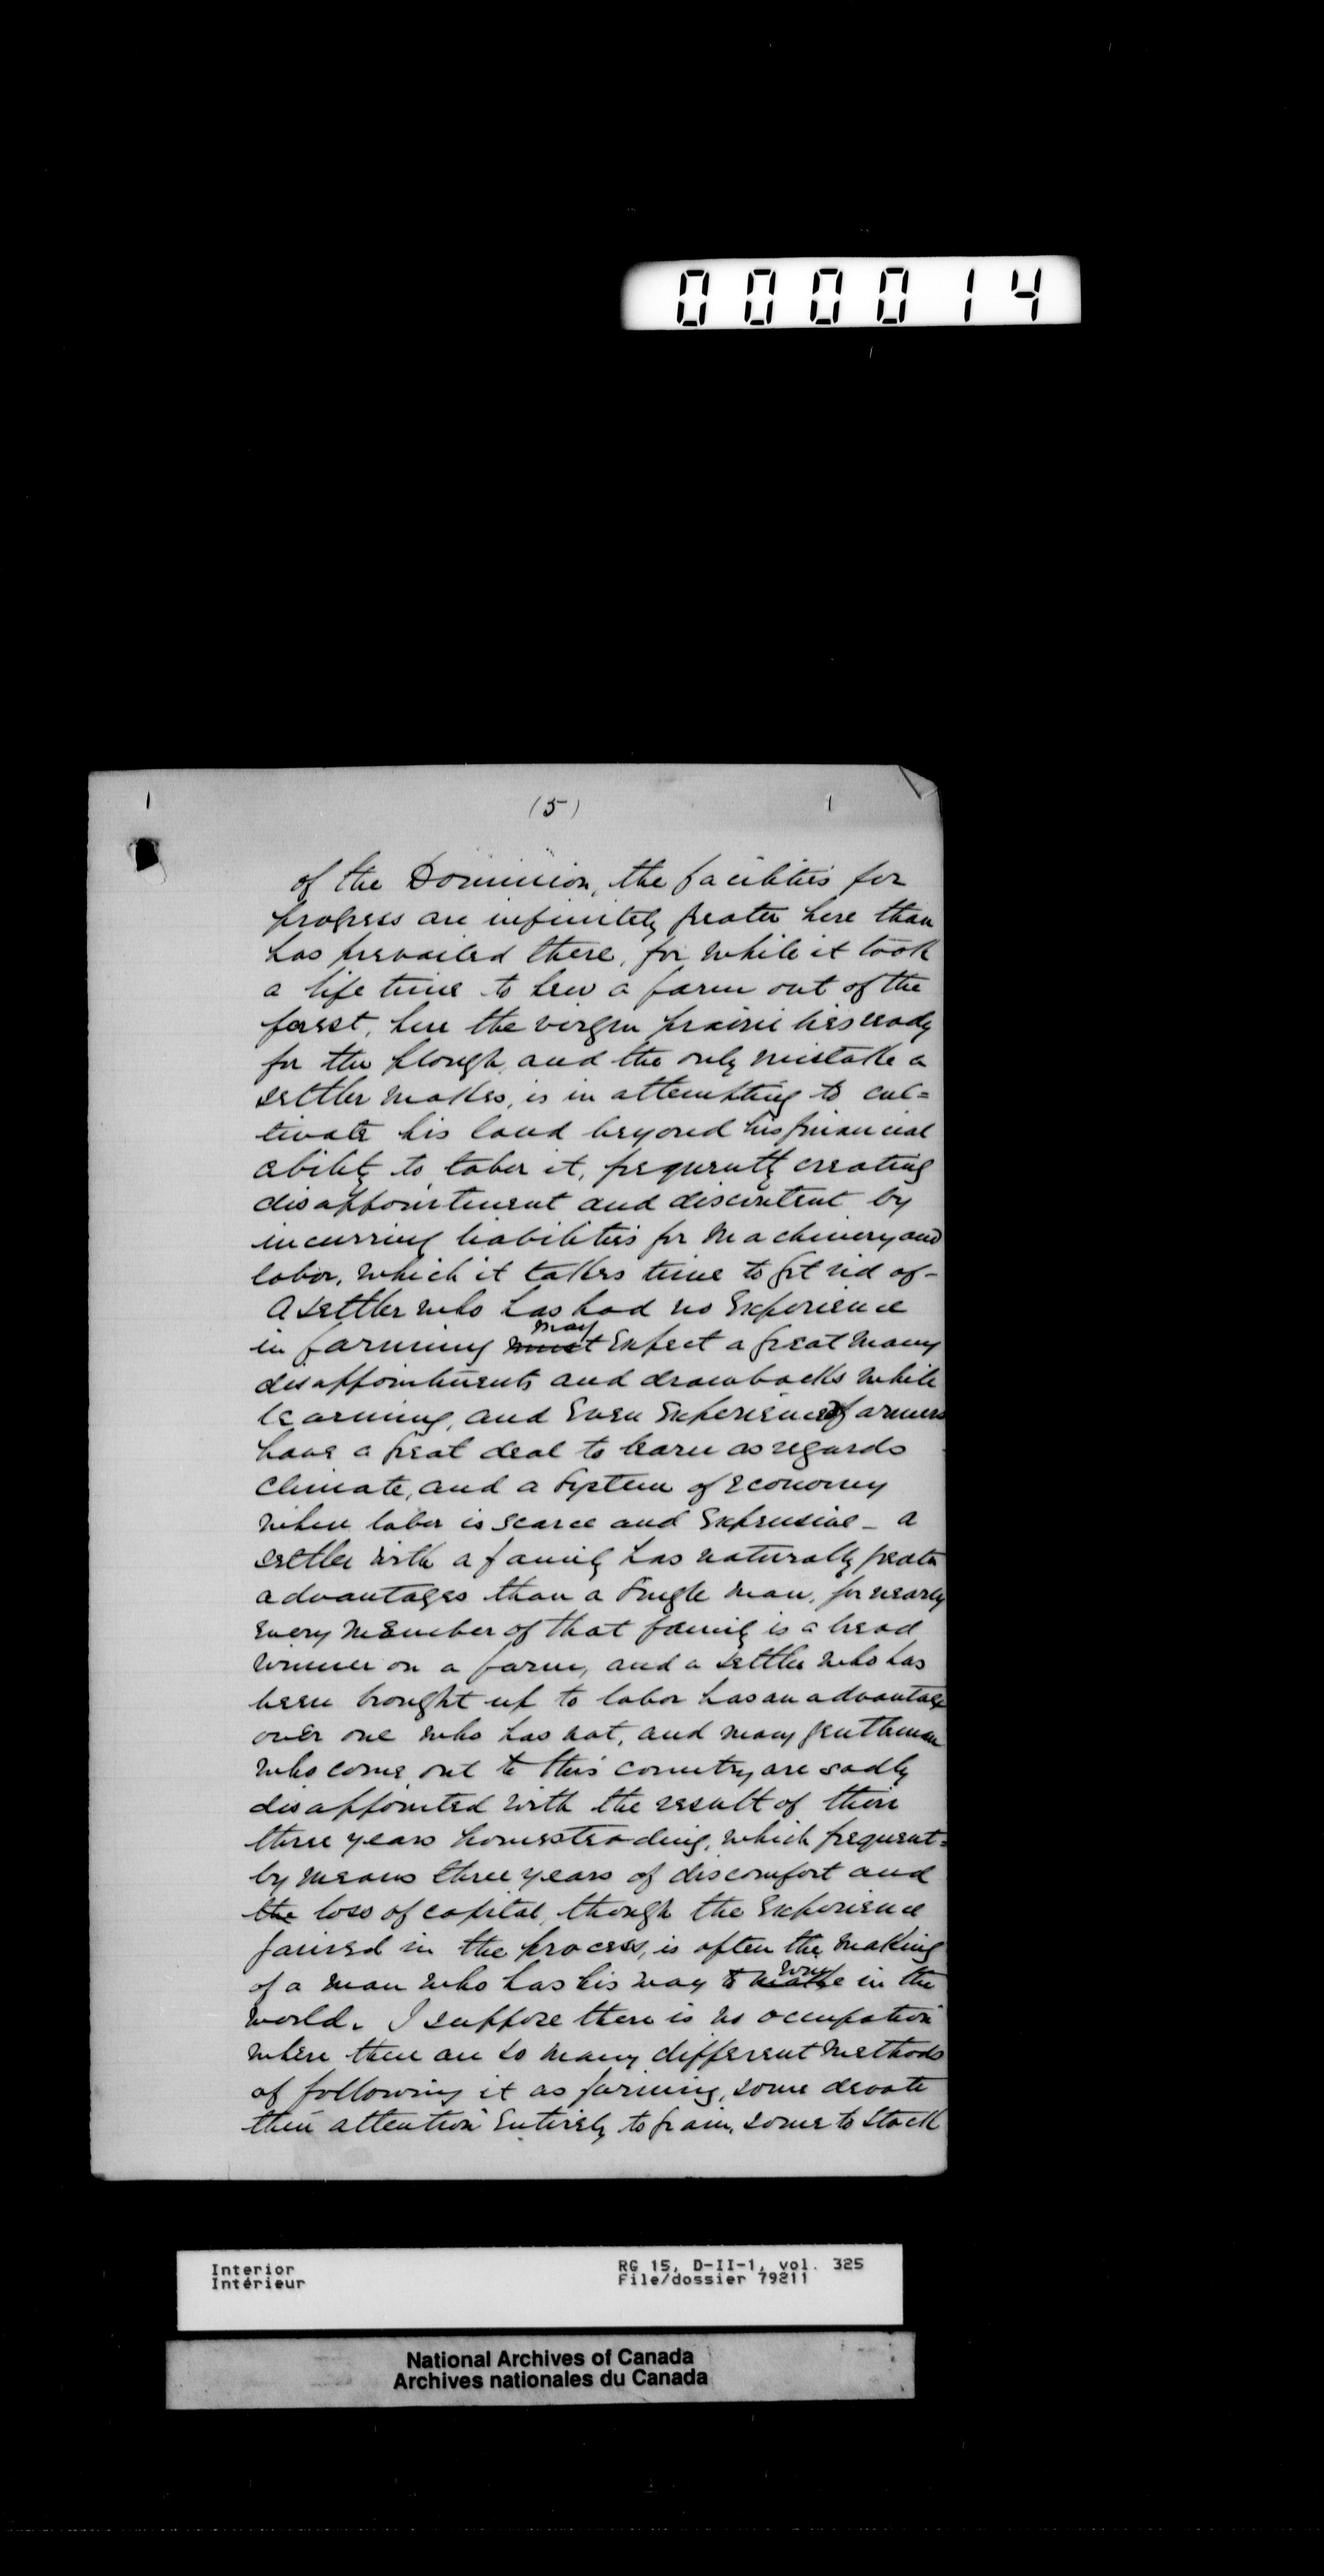 000014
(5)
of the Dominion, the facilities for
progress are infinitely greater here than
has prevailed there, for while it took
a life time to hew a farm out of the
forest, here the virgin prairie lies ready
for the plough, and the only mistake a
settler makes, is in attempting to cul=
tivate his land beyond his financial
ability to labor it, frequently creating
disappointment and discontent by
incurring liabilities for machinery and
labor, which it takes time to get rid of -
A settler who has had no experience
may
in farming must expect a great many
disappointments and drawbacks while
learning, and even experienced farmers
have a great deal to learn as regards
climate, and a system of economy
when labor is scarce and expensive - a
settler with a family has naturally greater
advantages than a single man, for nearly
every member of that family is a bread
winner on a farm, and a settler who has
been brought up to labor has an advantage
over one who has not, and many gentlemen
who come out to this country are sadly
disappointed with the result of their
three years homesteading, which frequent=
ly means three years of discomfort and
the loss of capital, though the experience
gained in the process, is often the making
of a man who has his way to make in the
world. I suppose there is no occupation
where there are so many different methods
of following it as farming, some devote
their attention entirely to grain, some to stock
Interior
Intérieur
RG 15, D-II-1, vol. 325
File/dossier 79211
National Archives of Canada
Archives nationales du Canada